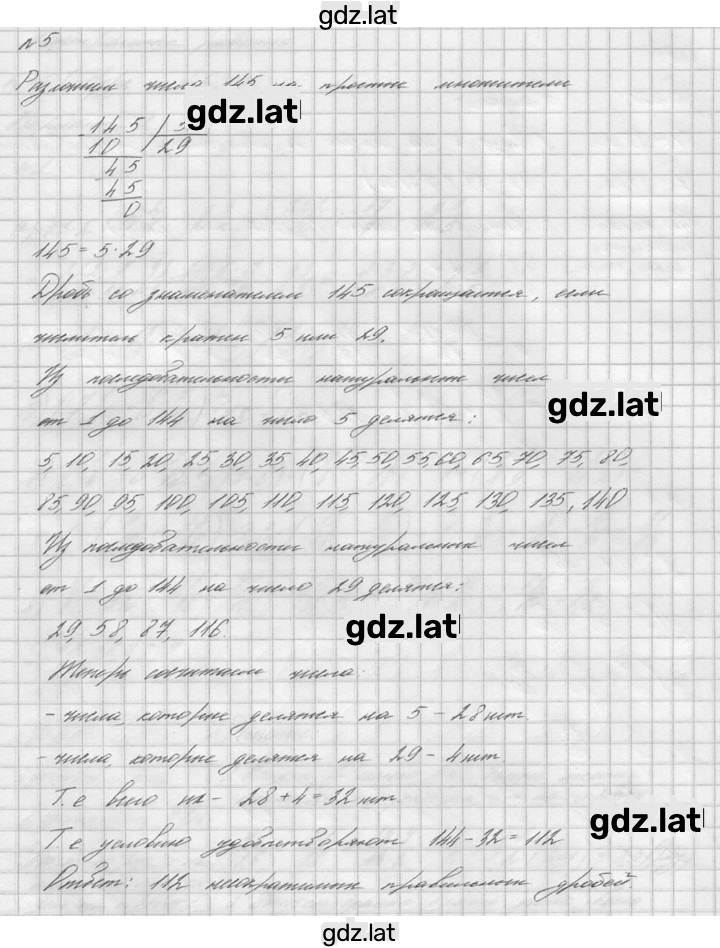 gdz.lat
№5
Разложим число 145 на простые множители
gdz.lat
145
10 29
45
45
0
145 = 5 · 29
Дробь со знаменателем 145 сокращается, если
числитель кратен 5 или 29.
Из последовательности натуральных чисел
gdz.lat
от 1 до 144 на число 5 делятся:
5, 10, 15, 20, 25, 30, 35, 40, 45, 50, 55, 60, 65, 70, 75, 80,
85, 90, 95, 100, 105, 110, 115, 120, 125, 130, 135, 140
Из последовательности натуральных чисел
от 1 до 144 на число 29 делятся:
29, 58, 87, 116.
gdz.lat
Теперь сосчитаем числа:
- числа, которые делятся на 5 - 28 шт.
- числа, которые делятся на 29 - 4 шт
Т.е всего их - 28 + 4 = 32 шт.
gdz.lat
Т.е условию удовлетворяют 144 - 32 = 112
Ответ: 112 несократимых правильных дробей.
gdz.lat